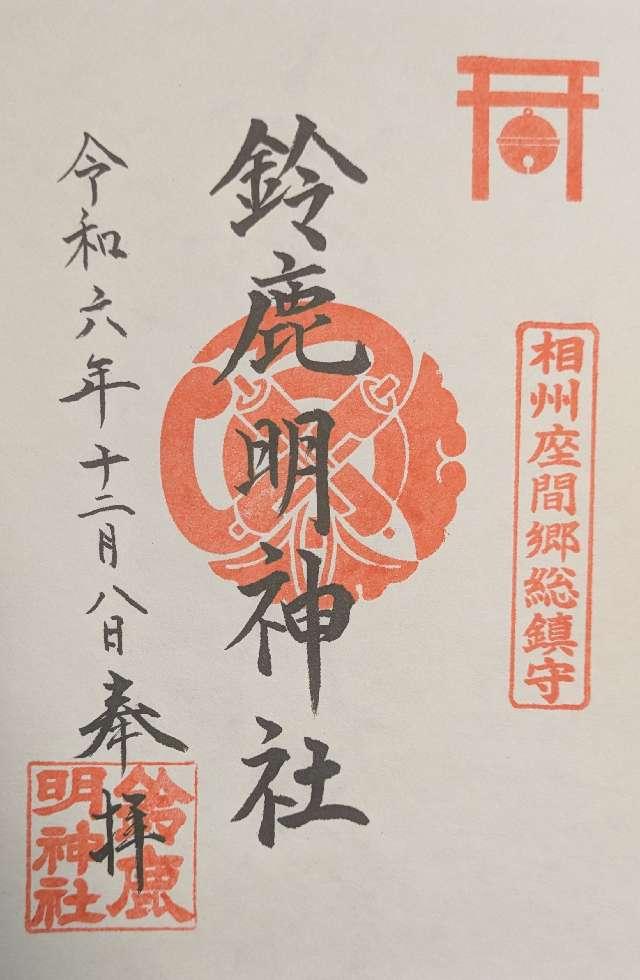 相州座間郷総鎮守
鈴鹿明神社
令和六年十二月八日奉拝
鈴鹿
明神社